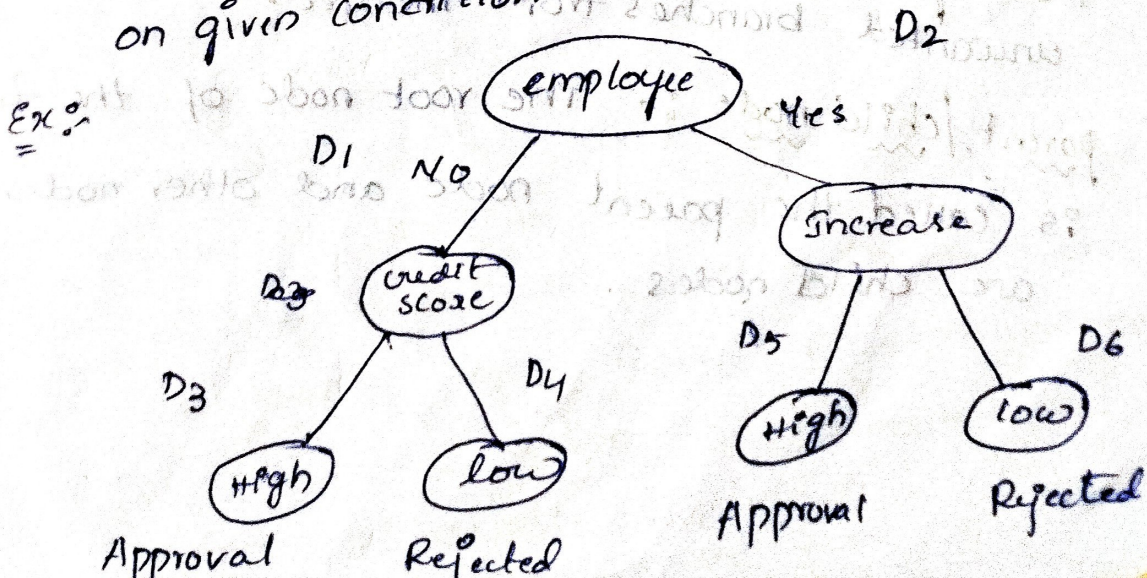 on given
Ex:
employee
D2
Yes
D1
NO
Increase
credit
score
D5
D6
D3
D4
High
low
High
low
Approval
Rejected
Approval
Rejected